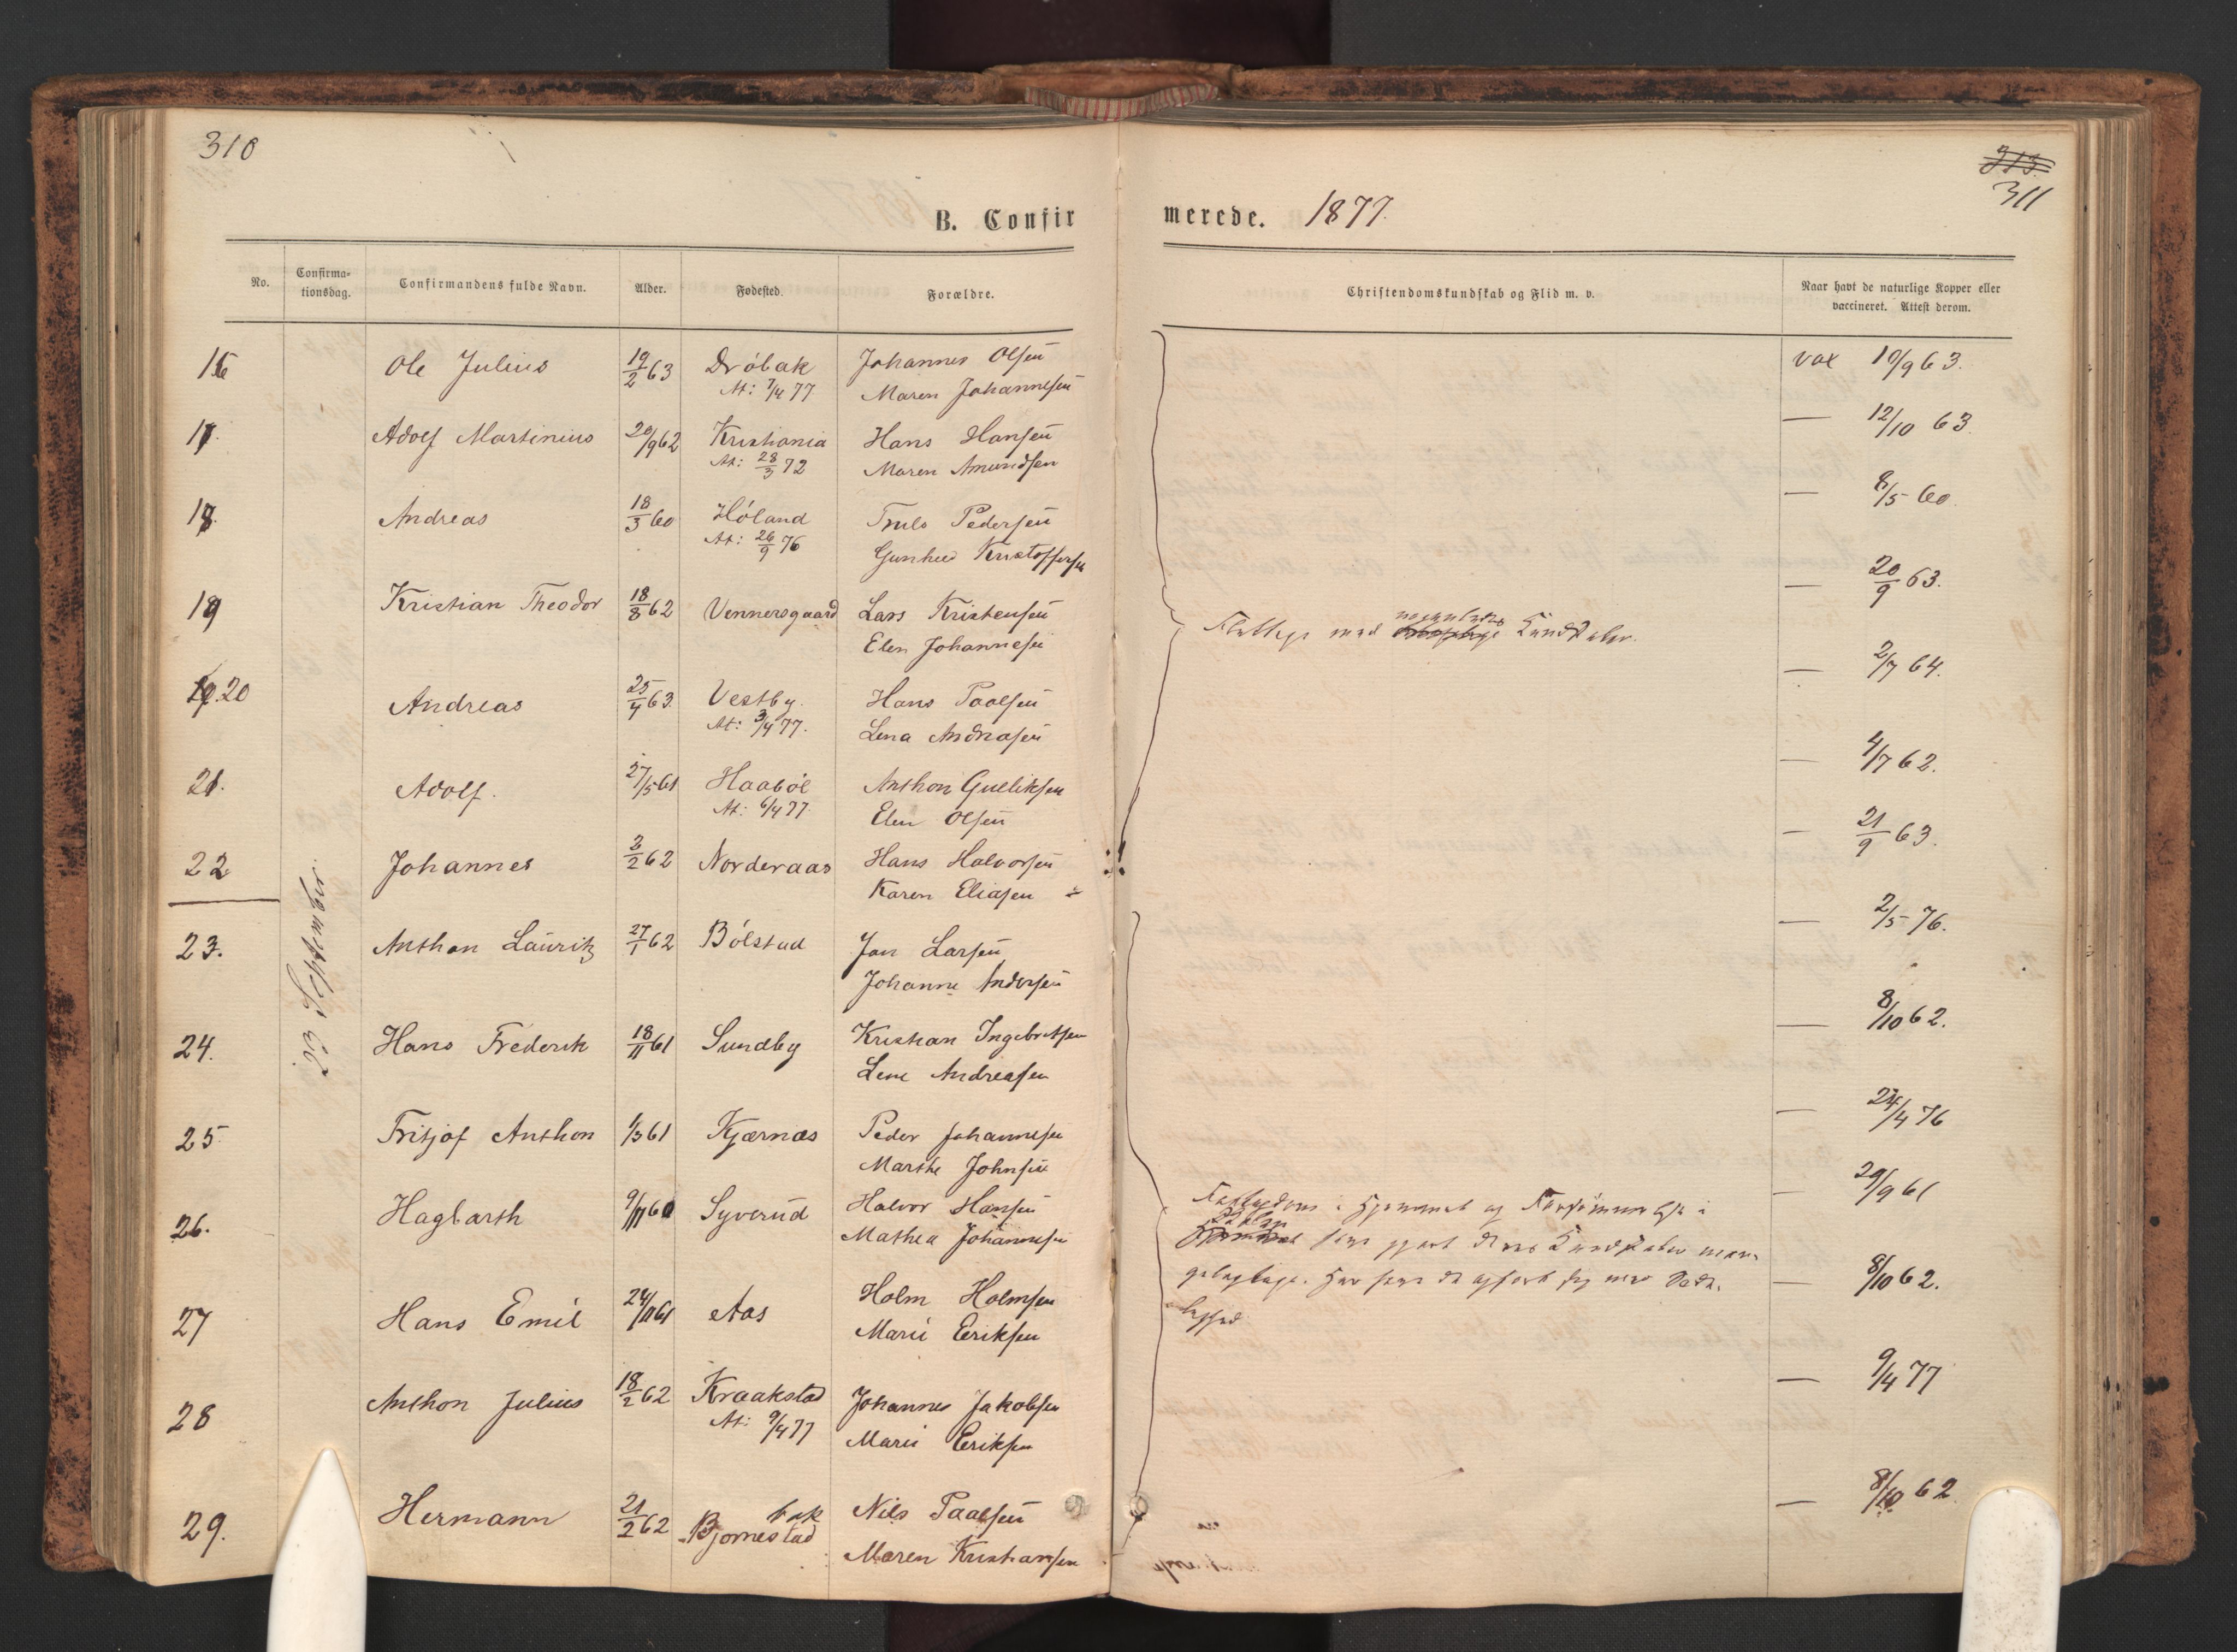 310
B. Confir
No.
Confirma-
tionsdag.
Confirmandens fulde Navn.
Alder.
Fødested.
Forældre.
16 Ole Julius 19/2 63 Dröbak Johannes Olsen
At: 7/4 77 Maren Johannesen
17. Adolf Martinius 20/9 62 Kristiania Hans Hansen
At: 28/3 72 Maren Amundsen
18. Andreas 18/3 60 Höland Truls Pedersen
At: 26/9 76 Gunhild Kristoffersen
19 Kristian Theodor 18/8 62 Vennersgaard Lars Kristensen
Elen Johannesen
20 Andreas 25/4 63. Vestby. Hans Paalsen
At: 3/4 77. Lena Andreasen
21. Adolf. 27/5 61 Haaböl Anthon Gulliksen
At: 6/4 77. Elen Olsen
22 Johannes 2/2 62 Norderaas Hans Halvorsen
Karen Eliasen
23 September
23. Anthon Lauritz 27/1 62 Bölstad Jan Larsen
Johanne Andersen
24. Hans Frederik 18/11 61 Sundby Kristian Ingebretsen
Lene Andreasen
25 Fritjof Anthon 1/3 61 Kjærnæs Peder Johannesen
Marthe Johnsen
26. Hagbarth 9/11 60 Syverud Halvor Hansen
Mathea Johannesen
27 Hans Emil 24/11 61 Aas Holm Holmsen
Marie Eriksen
28 Anthon Julius 18/2 62 Kraakstad Johannes Jakobsen
At: 9/4 77 Marie Eriksen
29. Hermann 21/2 62 Bjørnestad Nils Paalsen
bak
Maren Kristiansen
313
311
merede. 1877.
Christendomskundskab og Flid m. v.
Naar havt de naturlige Kopper eller
vaccineret. Attest derom.
vax 19/9 63.
— 12/10 63.
— 8/5 60
— 20/9 63.
Flittige med Kundskaber.
— 2/7 64.
— 4/7 62.
— 21/9 63.
— 2/5 76.
— 8/10 62.
— 24/4 76
— 29/9 61
Fattigdom i Hjemmet og Forsømmelse i
Skolen
har gjort deres Kundskaber man-
gelagtige. Har de opført sig med
— 8/10 62.
— 9/4 77
— 8/10 62